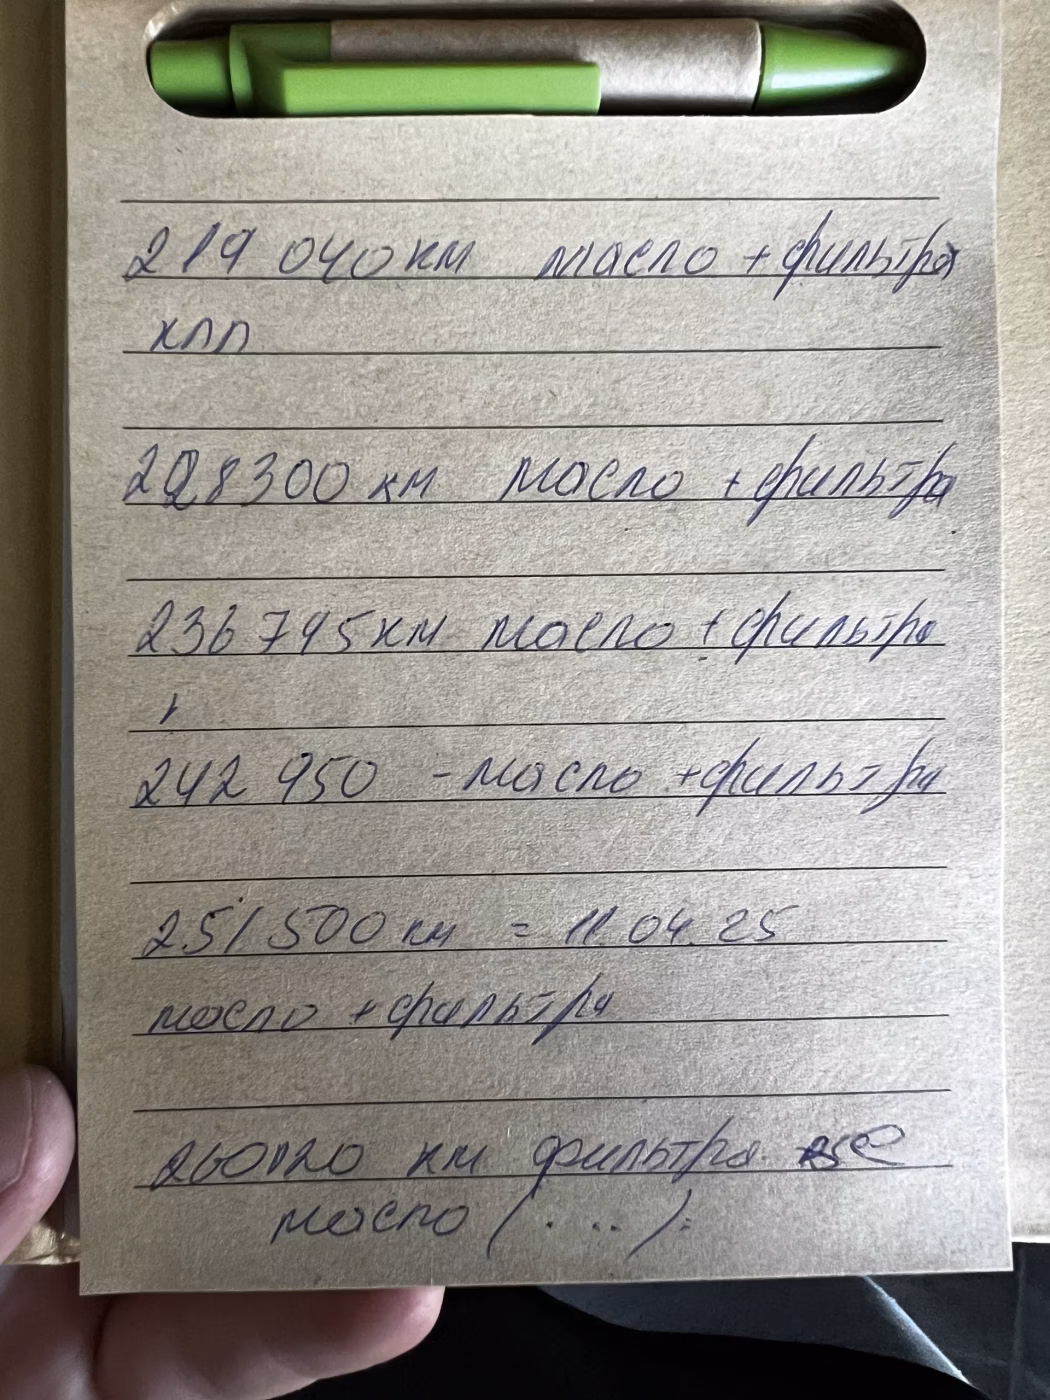 219 040 км масло + фильтра
кпп
228300 км масло + фильтра
236 745 км масло + фильтра
242 950 - масло + фильтра
251 500 км = 11.04.25
масло + фильтра
260120 км фильтра все
масло (. . . .).